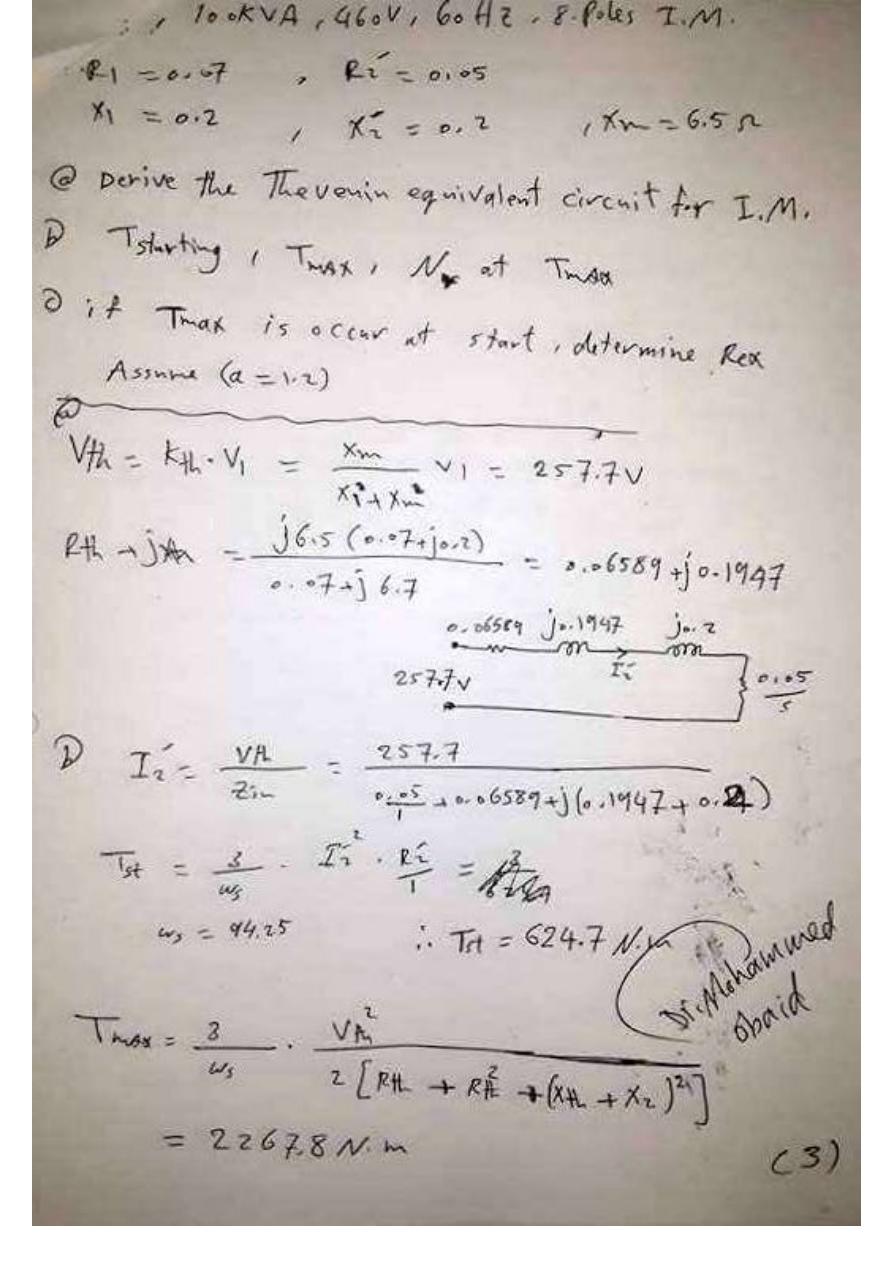 , 100KVA, 460V, 60 Hz, 8-Poles I.M.
R1 = 0.07 , R2' = 0.05
X1 = 0.2 , X2' = 0.2 , Xm = 6.5 Ω
ⓐ Derive the Thevenin equivalent circuit for I.M.
b Tstarting, Tmax, N at Tmax
c if Tmax is occur at start, determine Rex
Assume (a = 1.2)
ⓐ
Vth = Kth · V1 = Xm / X1² + Xm² V1 = 257.7V
Rth + jXth = j6.5 (0.07+j0.2) / 0.07+j6.7 = 0.06589 + j0.1947
0.06589 j0.1947 j0.2
257.7V I2' 0.05/s
b I2' = Vth / Zin = 257.7 / 0.05/1 + 0.06589 + j(0.1947 + 0.2)
Tst = 3/ws · I2'² · R2'/1 =
ws = 94.25 ∴ Tst = 624.7 N.m
Dr. Mohammed
Obaid
Tmax = 3/ws · Vth² / 2 [Rth + Rth² + (Xth + X2)²]
= 2267.8 N.m
(3)